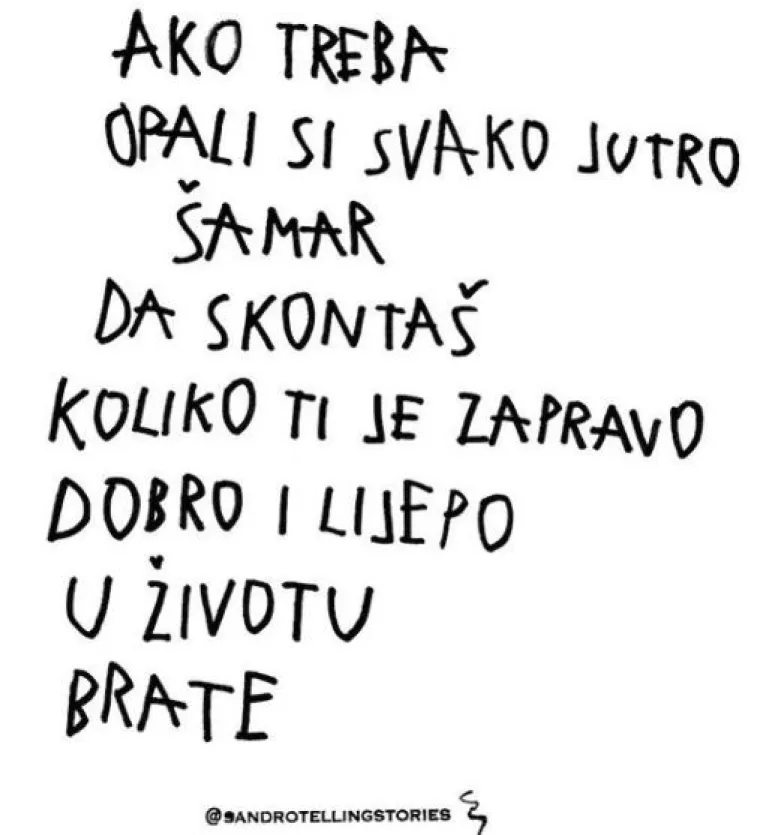 AKO TREBA
OPALI SI SVAKO JUTRO
ŠAMAR
DA SKONTAŠ
KOLIKO TI JE ZAPRAVO
DOBRO I LIJEPO
U ŽIVOTU
BRATE
@SANDROTELLINGSTORIES